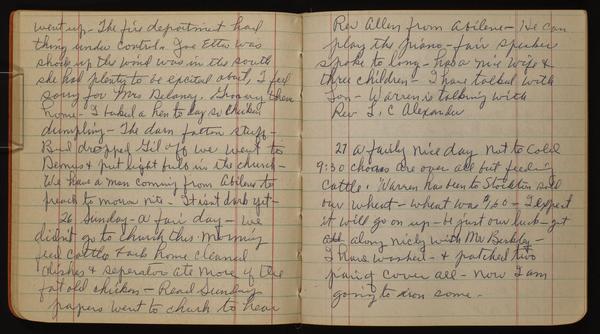 went up - The fire department had
thing under control. Joe Etta was
shook up the wind was in the south
she had plenty to be excited about, I feel
sorry for Mrs Delaney.
home - I baked a hen to day so chicken
dumpling - The darn fatton stuff -
Bud dropped Gil off we went to
Dennis & put light bulb in the church -
We have a man coming from Abilene to
preach to morrow nite - It isnt dark yet -
26 Sunday - a fair day - we
didn't go to church this morning
feed cattle & home cleaned
dishes & seperator ate more of the
fat old chicken - Read Sunday
papers went to church to hear
Rev Allen from Abilene - He can
play the piano - fair speaker
spoke to long - has a nice wife &
three children - I have talked with
Jon - Warren is talking with
Rev L, C Alexander
27 a fairly nice day not to cold
9:30 chores are over all but feeding
cattle. Warren has been to Stockton sold
our wheat - wheat was I expect
it will go on up - be just our luck - get
along nicely with Mr Berkley -
I have washed - & patched two
pair of cover all - now I am
going to iron some -